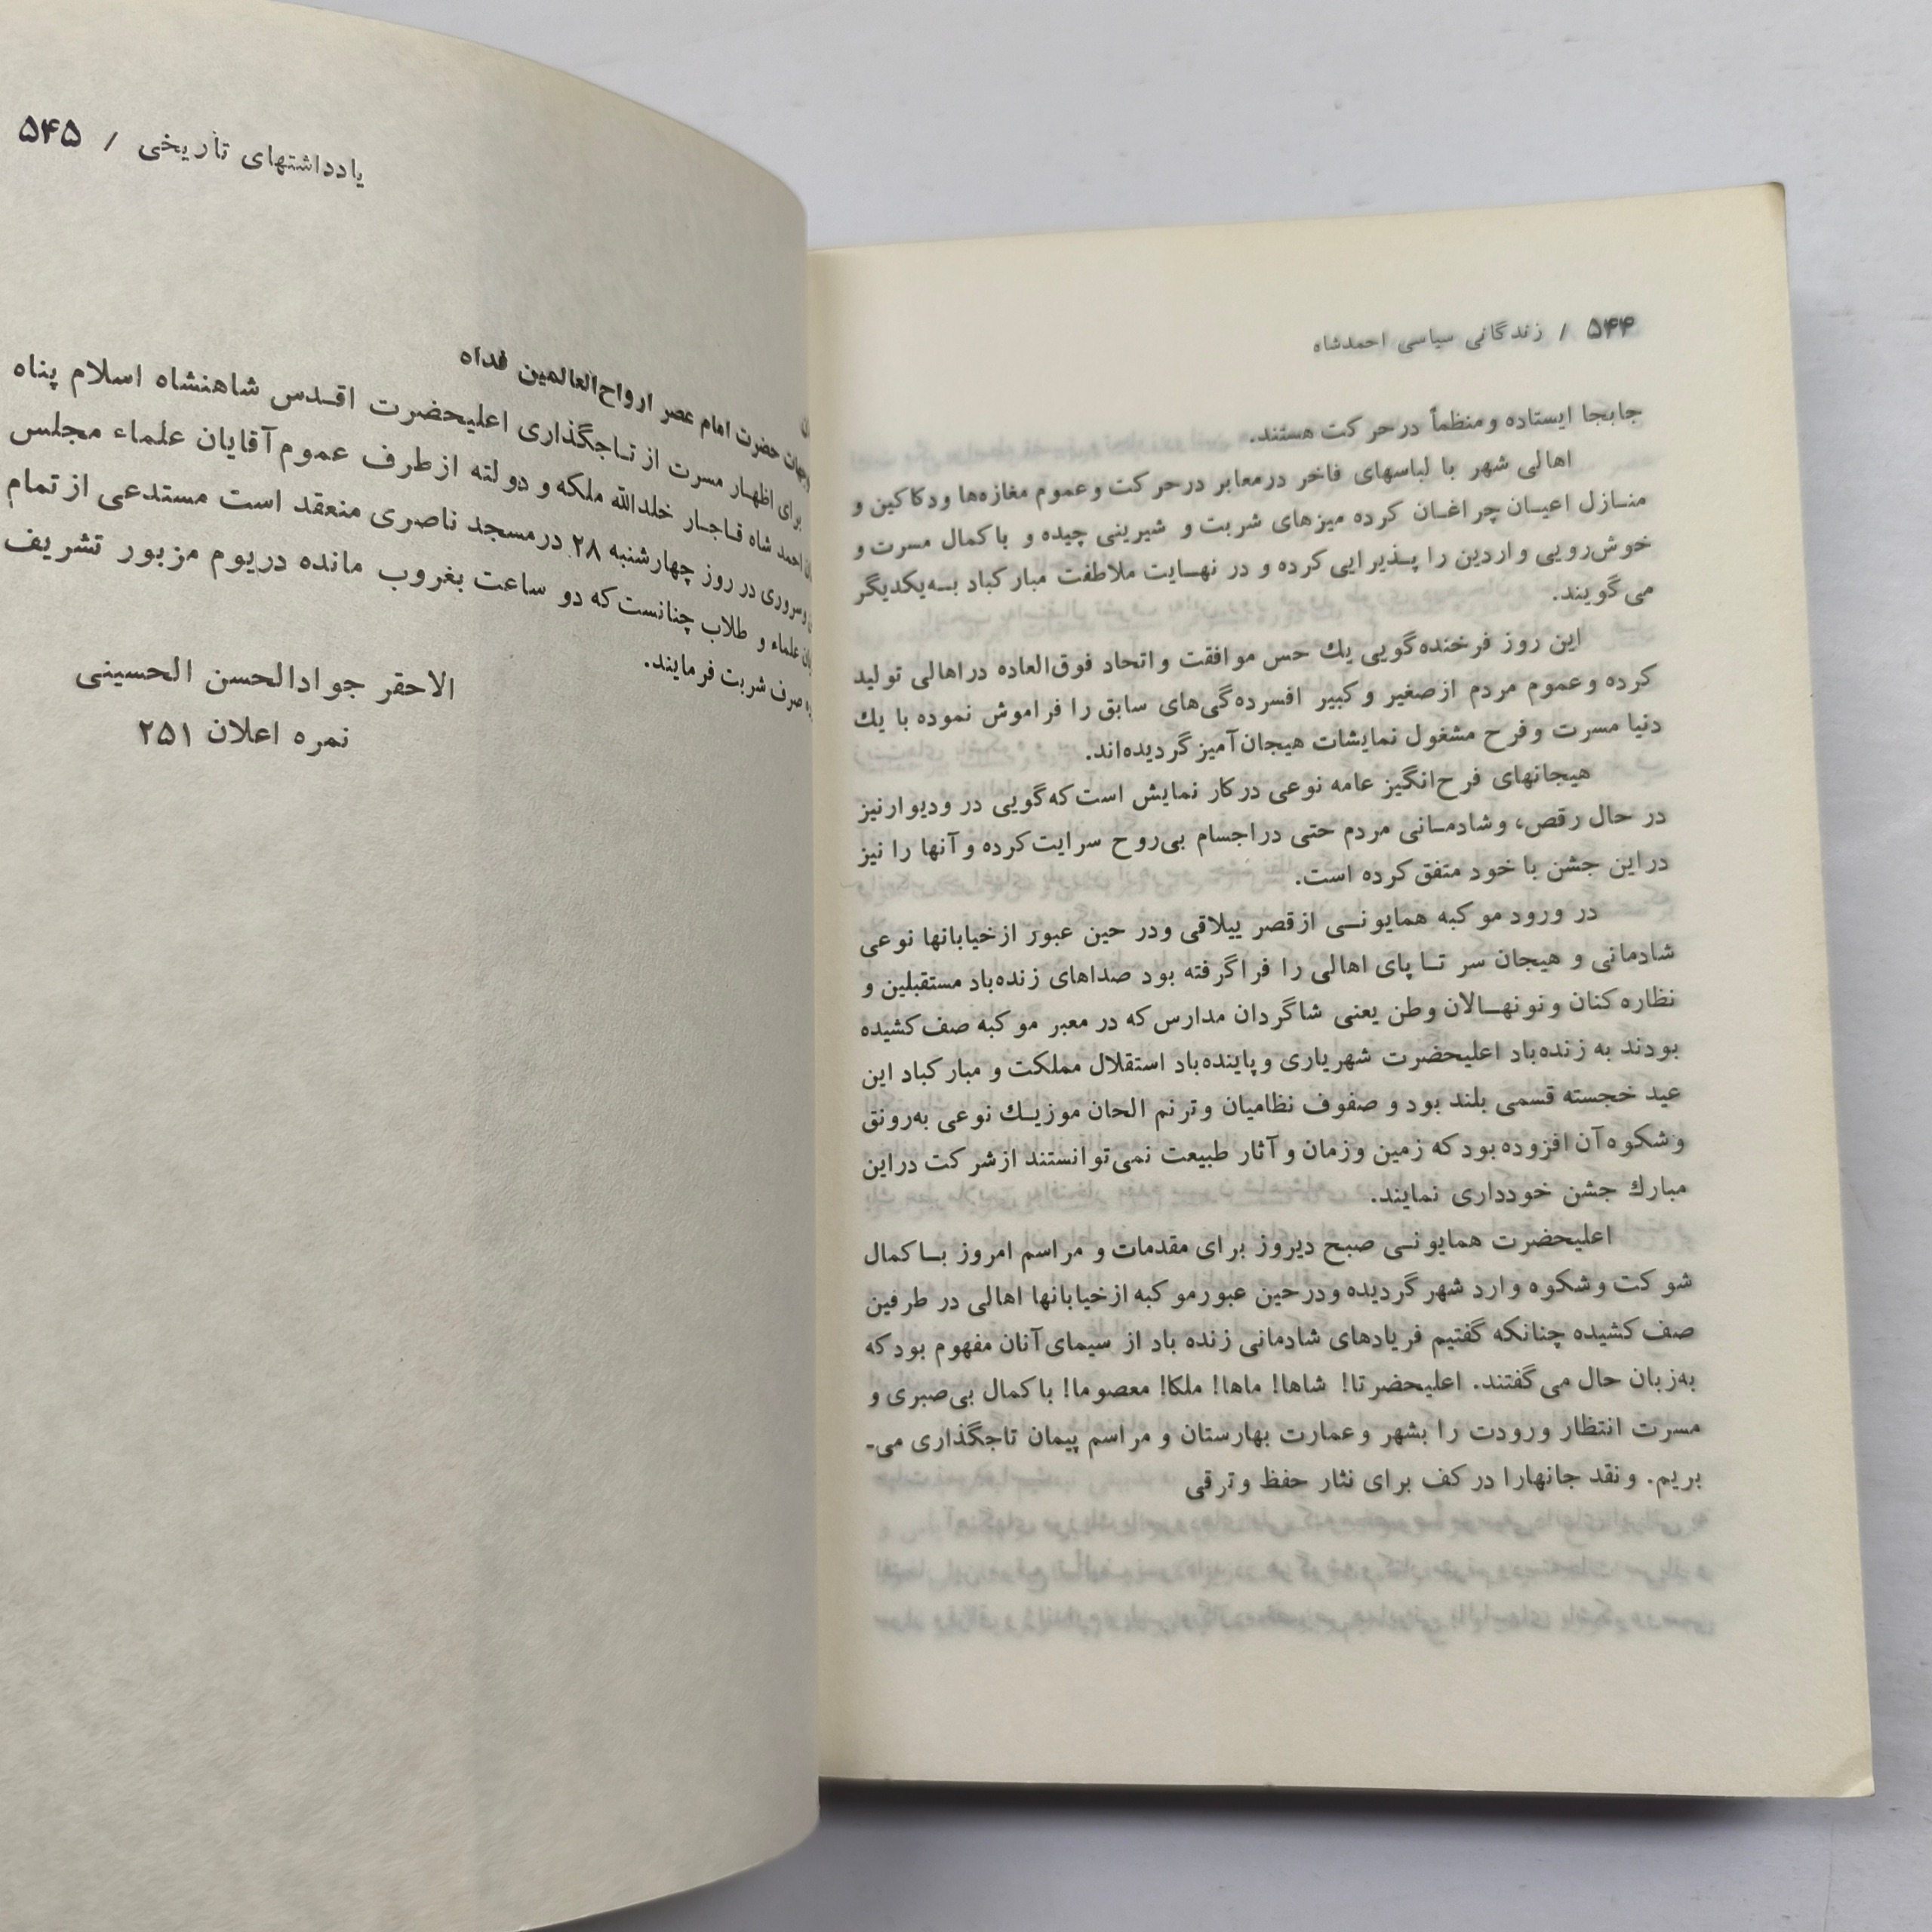 ۵۴۴ / زندگانی سیاسی احمدشاه
جابجا ایستاده ومنظماً درحرکت هستند.
اهالی شهر با لباسهای فاخر درمعابر درحرکت وعموم مغازه‌ها ودکاکین و
منـازل اعیـان چراغـان کرده میزهای شربت و شیرینی چیده و باکمال مسرت و
خوش‌رویی واردین را پـذیرایی کرده و در نهـایت ملاطفت مبارکباد بـه‌یکدیگر
می‌گویند.
این روز فرخنده‌گویی یك حس موافقت واتحاد فوق‌العاده دراهالی تولید
کرده وعموم مردم ازصغیر وکبیر افسرده‌گی‌های سابق را فراموش نموده با یك
دنیا مسرت وفرح مشغول نمایشات هیجان‌آمیز گردیده‌اند.
هیجانهای فرح‌انگیز عامه نوعی درکار نمایش است‌که‌گویی در ودیوارنیز
در حال رقص، وشادمـانی مردم حتی دراجسام بی‌روح سرایت‌کرده وآنها را نیز
دراین جشن با خود متفق کرده است.
در ورود موکبه همایونـی ازقصر ییلاقی ودر حین عبور ازخیابانها نوعی
شادمانی و هیجان سر تـا پای اهالی را فراگرفته بود صداهای زنده‌باد مستقبلین و
نظاره‌کنان ونونهـالان وطن یعنی شاگردان مدارس‌که در معبر موکبه صف‌کشیده
بودند به زنده‌باد اعلیحضرت شهریاری وپاینده‌باد استقلال مملکت و مبارکباد این
عید خجسته قسمی بلند بود و صفوف نظامیان وترنم الحان موزیـك نوعی به‌رونق
وشکوه‌آن‌افزوده‌بودکه زمین وزمان وآثار طبیعت نمی‌توانستند ازشرکت دراین
مبارك جشن خودداری نمایند.
اعلیحضرت همایونـی صبح دیروز برای مقدمات و مراسم امروز بـاکمال
شوکت وشکوه وارد شهرگردیده ودرحین عبورموکبه ازخیابانها اهالی در طرفین
صف‌کشیده چنانکه گفتیم فریادهای شادمانی زنده باد از سیمای‌آنان مفهوم بودکه
به‌زبان حال می‌گفتند. اعلیحضرتا! شاها! ماها! ملکا! معصوما! باکمال بی‌صبری و
مسرت انتظار ورودت را بشهر وعمارت بهارستان و مراسم پیمان تاجگذاری می‌-
بریم. ونقد جانهارا درکف برای نثار حفظ وترقی
یادداشتهای تاریخی / ۵۴۵
حضرت امام عصر ارواح‌العالمین فداه
برای اظهـار مسرت از تـاجگذاری اعلیحضرت اقـدس شاهنشاه اسلام پناه
احمد شاه قـاجـار خلدالله ملکه و دولته ازطرف عموم‌آقایان علماء مجلس
وسروری در روز چهارشنبه ۲۸ درمسجد ناصری منعقد است مستدعی ازتمام
علماء و طلاب چنانست‌که دو ساعت بغروب مانده دریوم مزبور تشریف
صرف شربت فرمایند.
الاحقر جوادالحسن الحسینی
نمره اعلان ۲۵۱